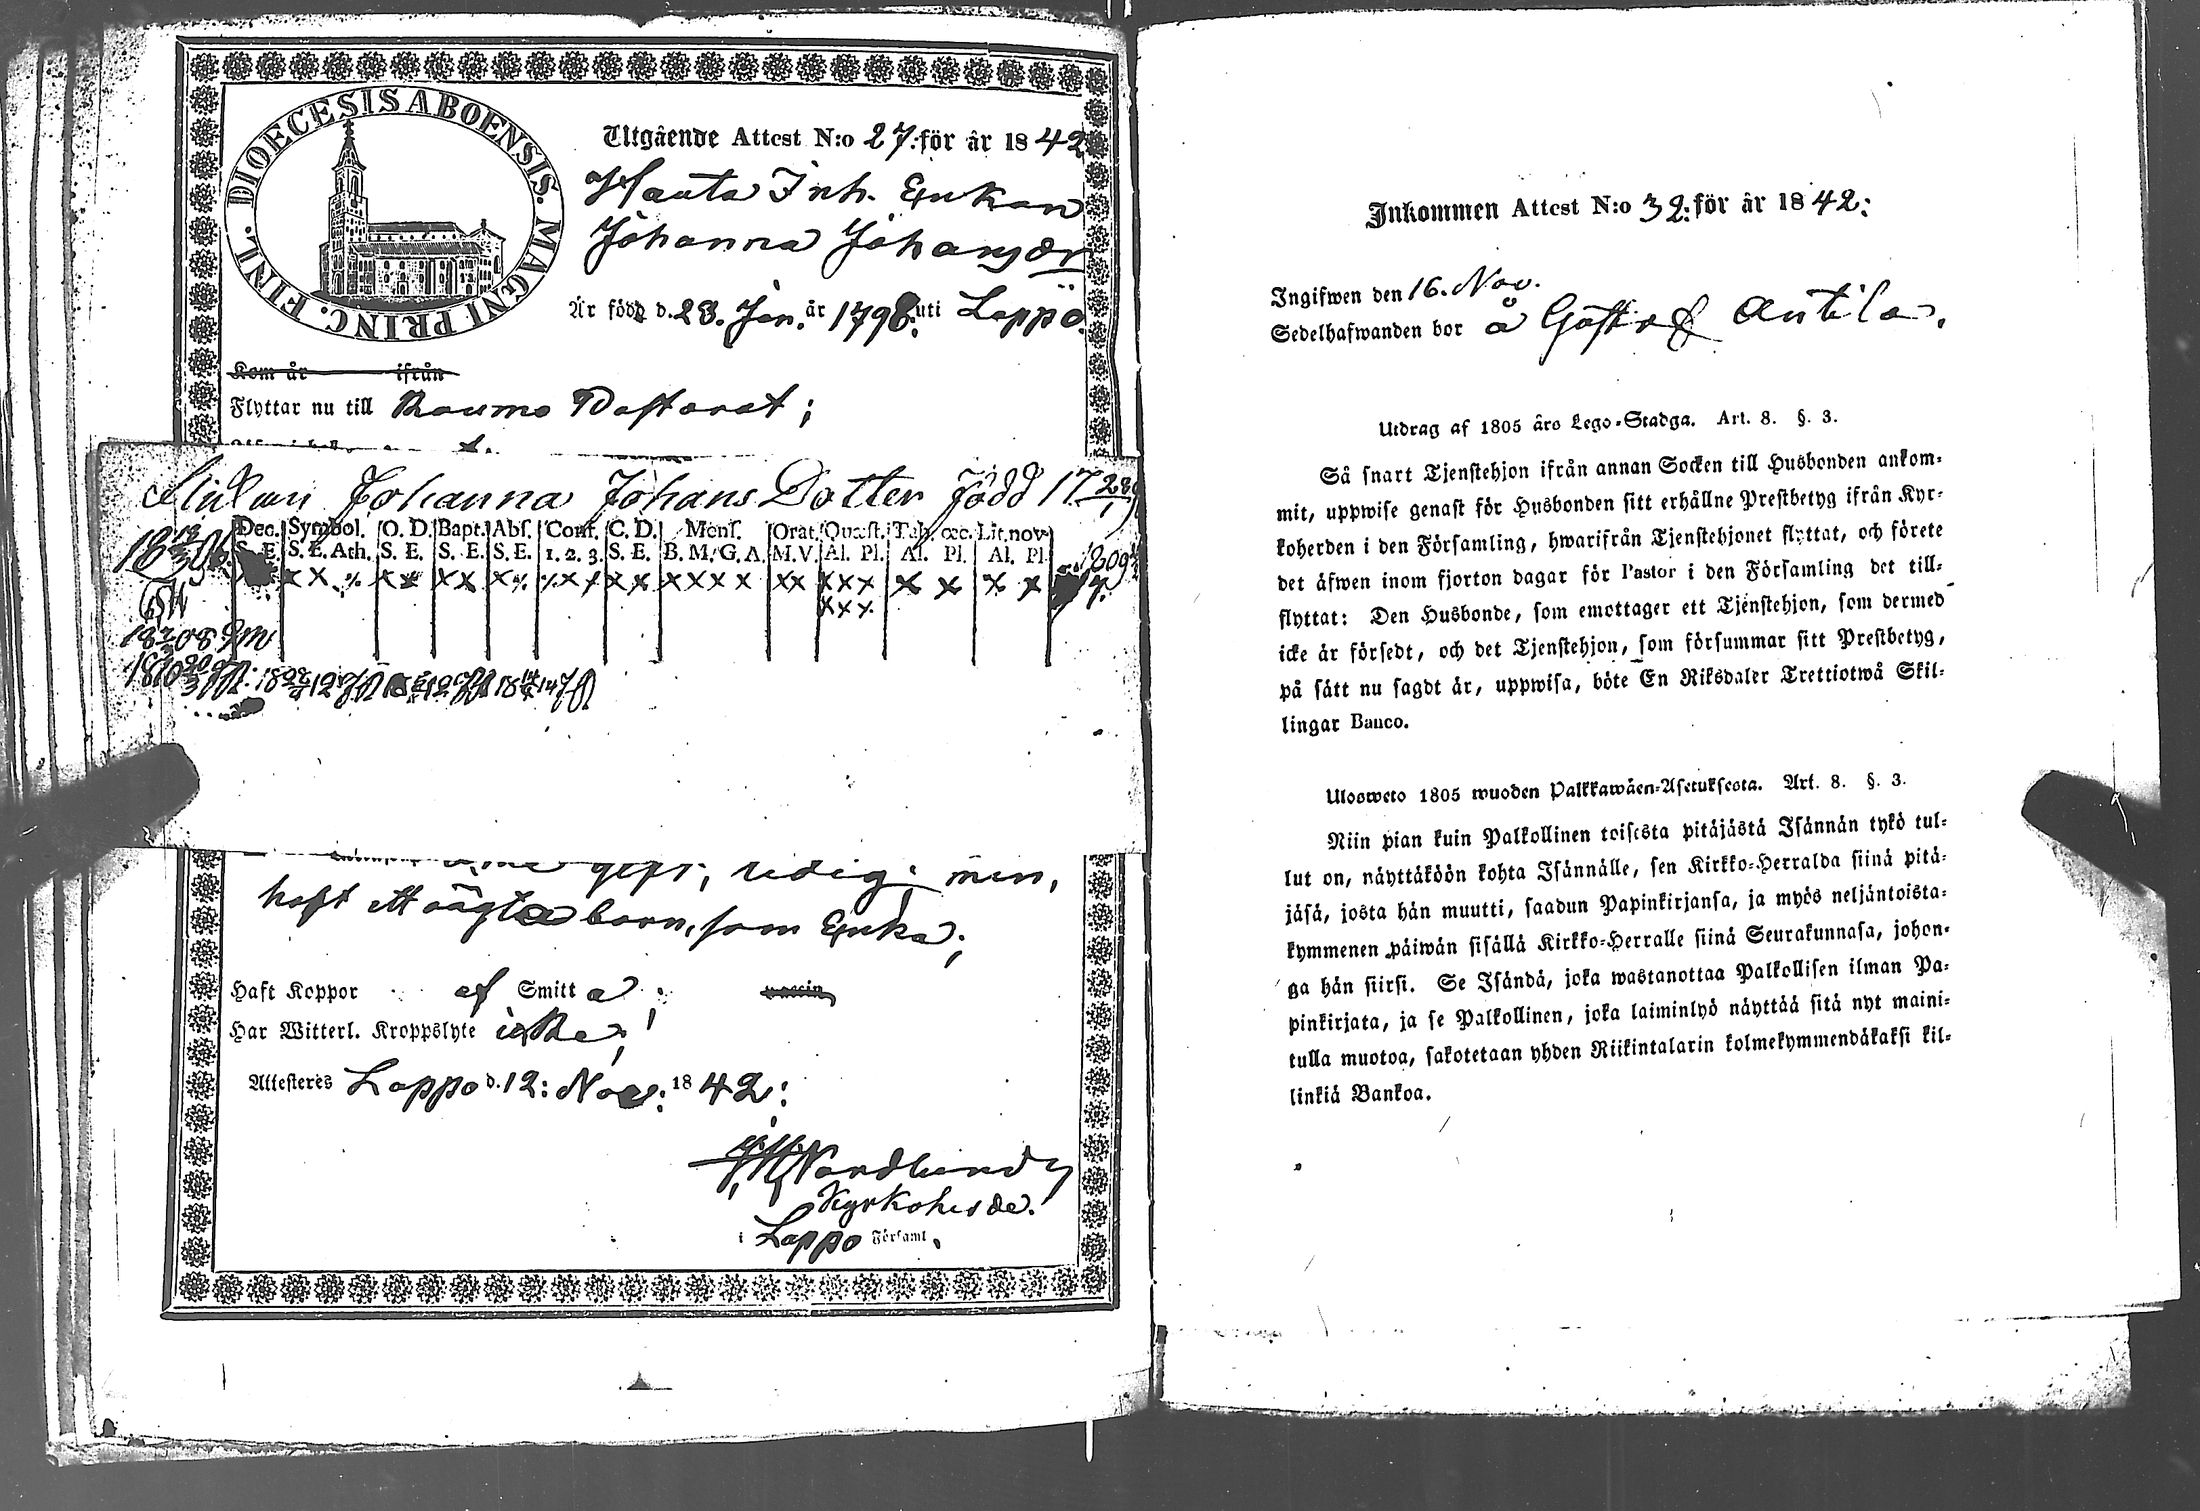 DIOECESIS ABOENSIS. MAGNI PRINC. FINL.
Utgående Attest N:o 27: för år 1842
Hauta Inh. Enkan
Johanna Johansdr
Är född d. 23. Jan. år 1798. uti Lappo.
Kom år ifrån
Flyttar nu till Raumo Pastorat;
Johanna Johans Dotter född 17
Dec. Symbol. O. D. Bapt. Abs. Conf. C. D. Mens. Orat. Quæst. Tab. œc. Lit. nov.
S. E. S. E. Ath. S. E. S. E. S. E. 1. 2. 3. S. E. B. M. G. A. M. V. Al. Pl. Al. Pl. Al. Pl.
gift; ledig; men,
haft ett oägta barn, som Enka;
Haft Koppor af Smitta; vaccin
Har Witterl. Kroppslyte icke;
Attesteres Lappo d. 12: Nov: 1842:
Nordlund
Kyrkoherde.
i Lappo Församl.
Inkommen Attest N:o 32: för år 1842:
Ingifwen den 16. Nov.
Sedelhafwanden bor å Gåstof Antila.
Utdrag af 1805 års Lego-Stadga. Art. 8. §. 3.
Så snart Tjenstehjon ifrån annan Socken till Husbonden ankom-
mit, uppwise genast för Husbonden sitt erhållne Prestbetyg ifrån Kyr-
koherden i den Församling, hwarifrån Tjenstehjonet flyttat, och förete
det äfwen inom fjorton dagar för Pastor i den Församling det till-
flyttat: Den Husbonde, som emottager ett Tjenstehjon, som dermed
icke är försedt, och det Tjenstehjon, som försummar sitt Prestbetyg,
på sätt nu sagdt är, uppwisa, böte En Riksdaler Trettiotwå Skil-
lingar Banco.
Ulosweto 1805 wuoden Palkkawäen-Asetuksesta. Art. 8. §. 3.
Niin pian kuin Palkollinen toisesta pitäjästä Isännän tykö tul-
lut on, näyttäköön kohta Isännälle, sen Kirkko-Herralda siinä pitä-
jäsä, josta hän muutti, saadun Papinkirjansa, ja myös neljäntoista-
kymmenen päiwän sisällä Kirkko-Herralle siinä Seurakunnasa, johon-
ga hän siirsi. Se Isändä, joka wastanottaa Palkollisen ilman Pa-
pinkirjata, ja se Palkollinen, joka laiminlyö näyttää sitä nyt maini-
tulla muotoa, sakotetaan yhden Riikintalarin kolmekymmendäkaksi kil-
linkiä Bankoa.